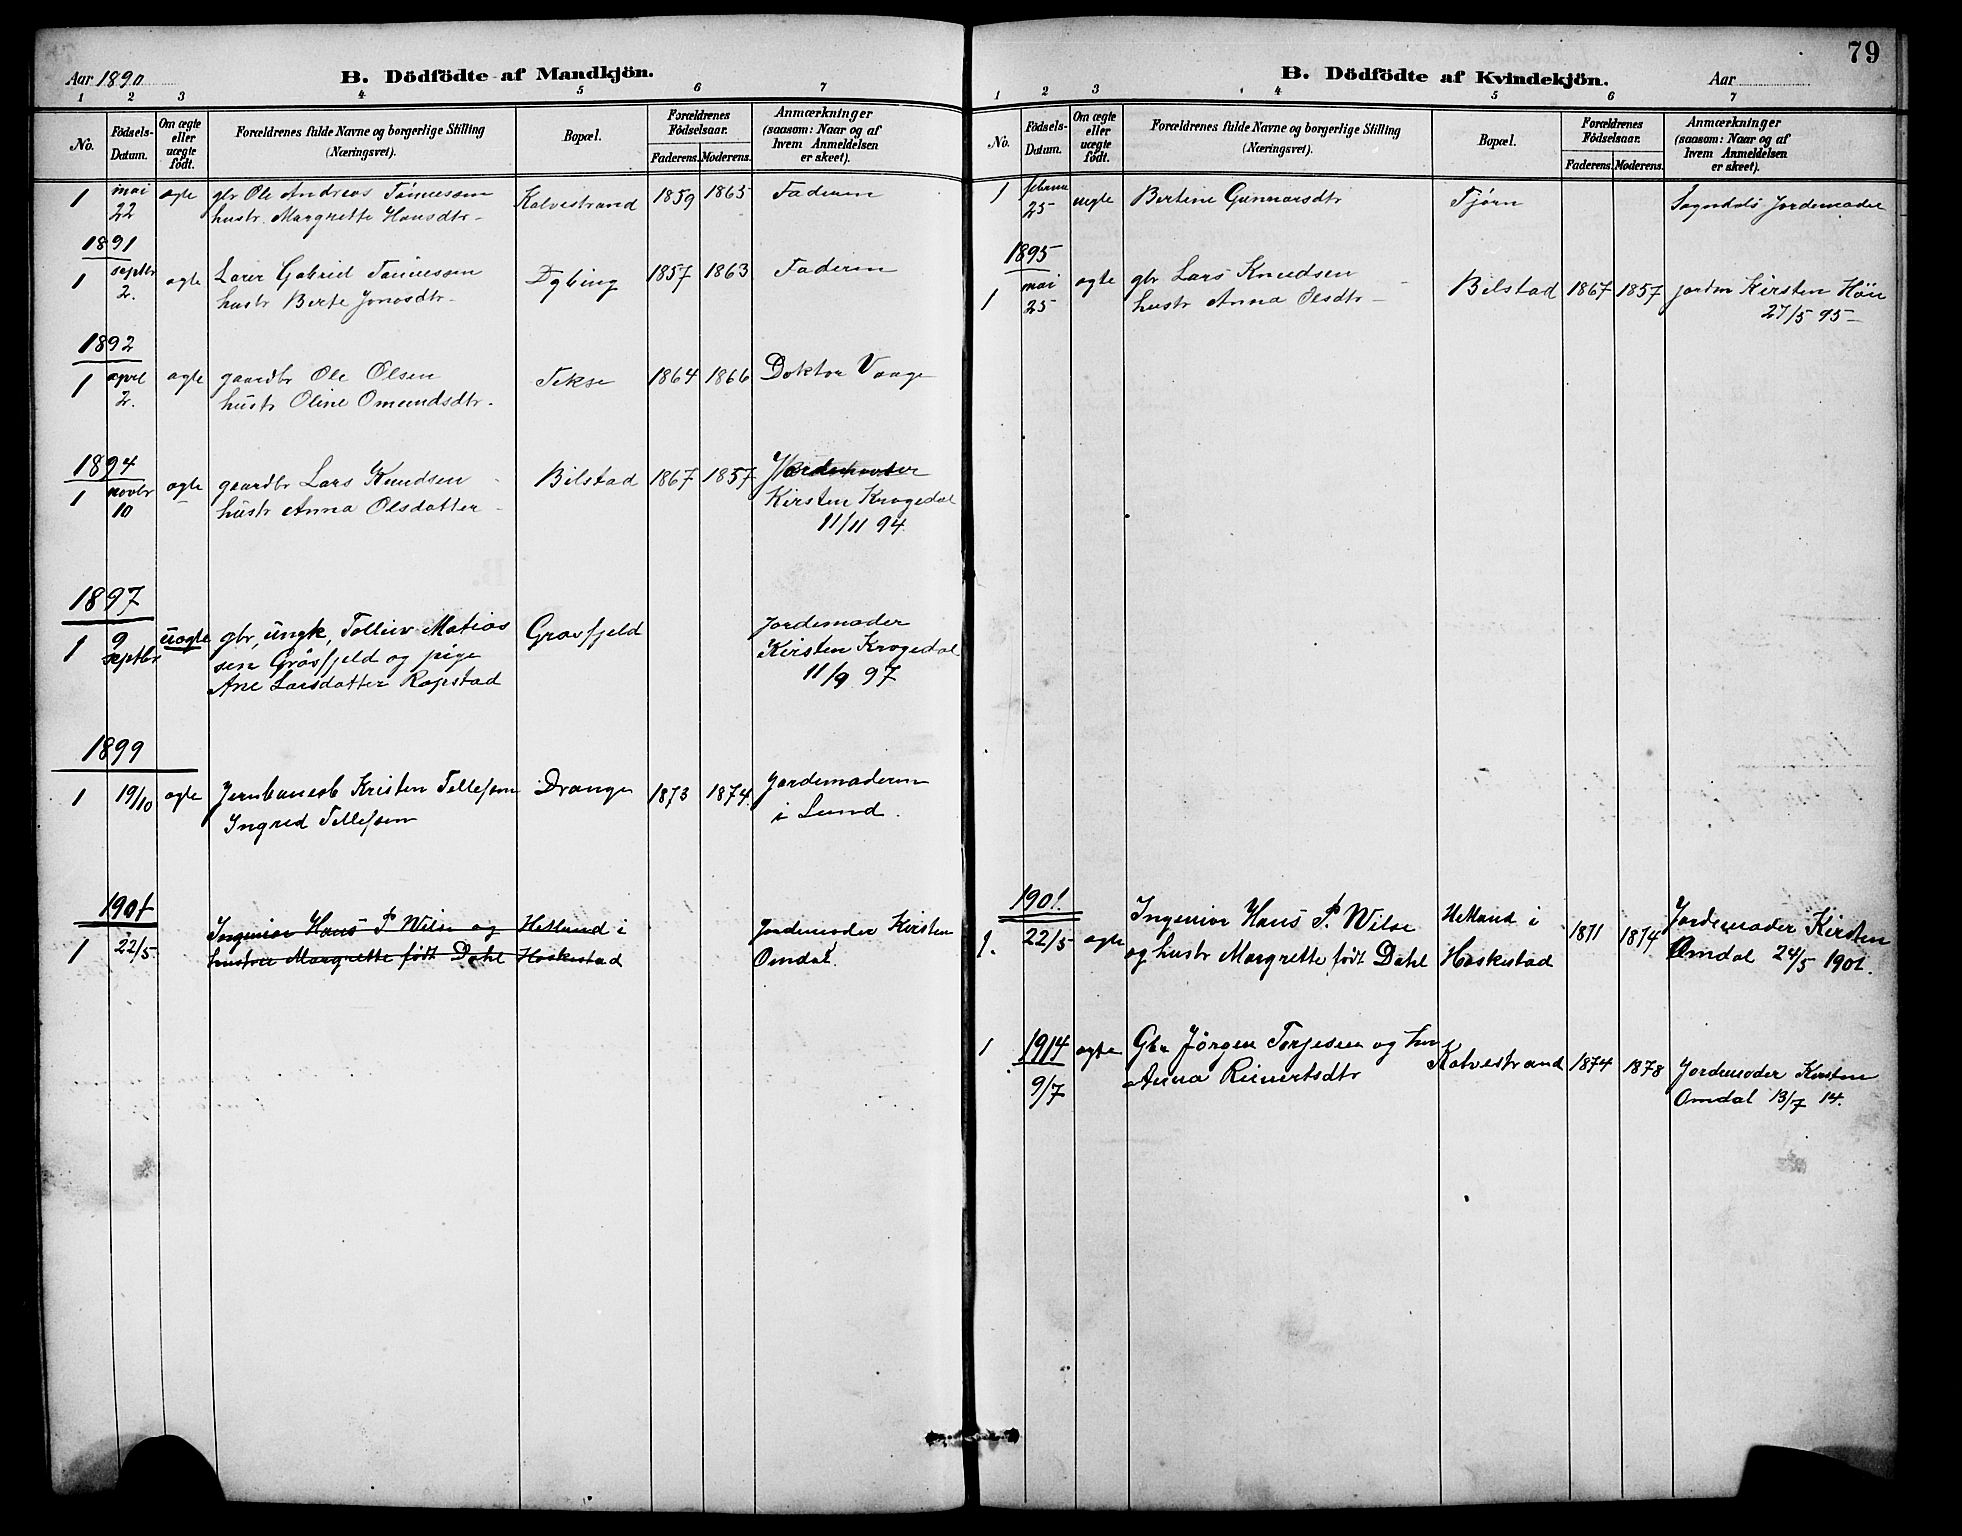 Aar 1890
B. Dödfödte af Mandkjön.
1 2 3 4 5 6 7
No.
Födsels-Datum.
Om ægte eller uægte födt.
Forældrenes fulde Navne og borgerlige Stilling (Næringsvei).
Bopæl.
Forældrenes Födselsaar.
Faderens. Moderens.
Anmærkninger (saasom: Naar og af hvem Anmeldelsen er skeet).
1 mai 22 ægte gbr Ole Andreas Tønnessen Kalvestrand 1859 1865 Faderen
hustr. Margrette Hansdtr
1891
1 septbr 2. ægte Lærer Gabriel Tønnessen Dybing 1857 1863 Faderen
hustr Berte Jonasdtr
1892
1 april 2. ægte gaardbr Ole Olsen Tekse 1864 1866 Doktor Vaage
hustr Oline Omundsdtr
1894
1 novbr 10 ægte gaardbr Lars Knudsen Bilstad 1867 1857 Jordemoder
hustr Anna Olsdatter Kirsten Krogedal
11/11 94
1897
1 9 septbr uægte gbr, ungk, Tolliev Matias Gravfjeld Jordemoder
sen Gravfjeld og pige Kirsten Krogedal
Ane Larsdatter Rapstad 11/9 97
1899
1 19/10 ægte Jernbaneab Kristen Tellefsen Drange 1873 1874 Jordemoderen
Ingred Tellefsen i Lund.
1901
1 22/5 Ingeniør Hans P Wilse og Hetland i Jordemoder Kirsten
hustru Margrette født Dahl Heskestad Omdal
79
B. Dödfödte af Kvindekjön.
Aar
1 2 3 4 5 6 7
No.
Födsels-Datum.
Om ægte eller uægte födt.
Forældrenes fulde Navne og borgerlige Stilling (Næringsvei).
Bopæl.
Forældrenes Födselsaar.
Faderens. Moderens.
Anmærkninger (saasom: Naar og af hvem Anmeldelsen er skeet).
1 februar 25 uegte Bertine Gunnarsdtr Tjørn Sogndals Jordemoder
1895
1 mai 25 ægte gbr Lars Knudsen Bilstad 1867 1857 jordm Kirsten
hustr Anna Olsdtr 27/5 95
1901.
1. 22/5 ægte Ingeniør Hans P. Wilse Hetland i 1871 1874 Jordemoder Kirsten
og hustr Margrette født Dahl Heskestad Omdal 24/5 1901.
1 1914 ægte Gbr Jørgen Torjesen og hu Kalvestrand 1874 1878 Jordemoder Kirsten
9/7 Anna Reinertsdtr Omdal 13/7 14.